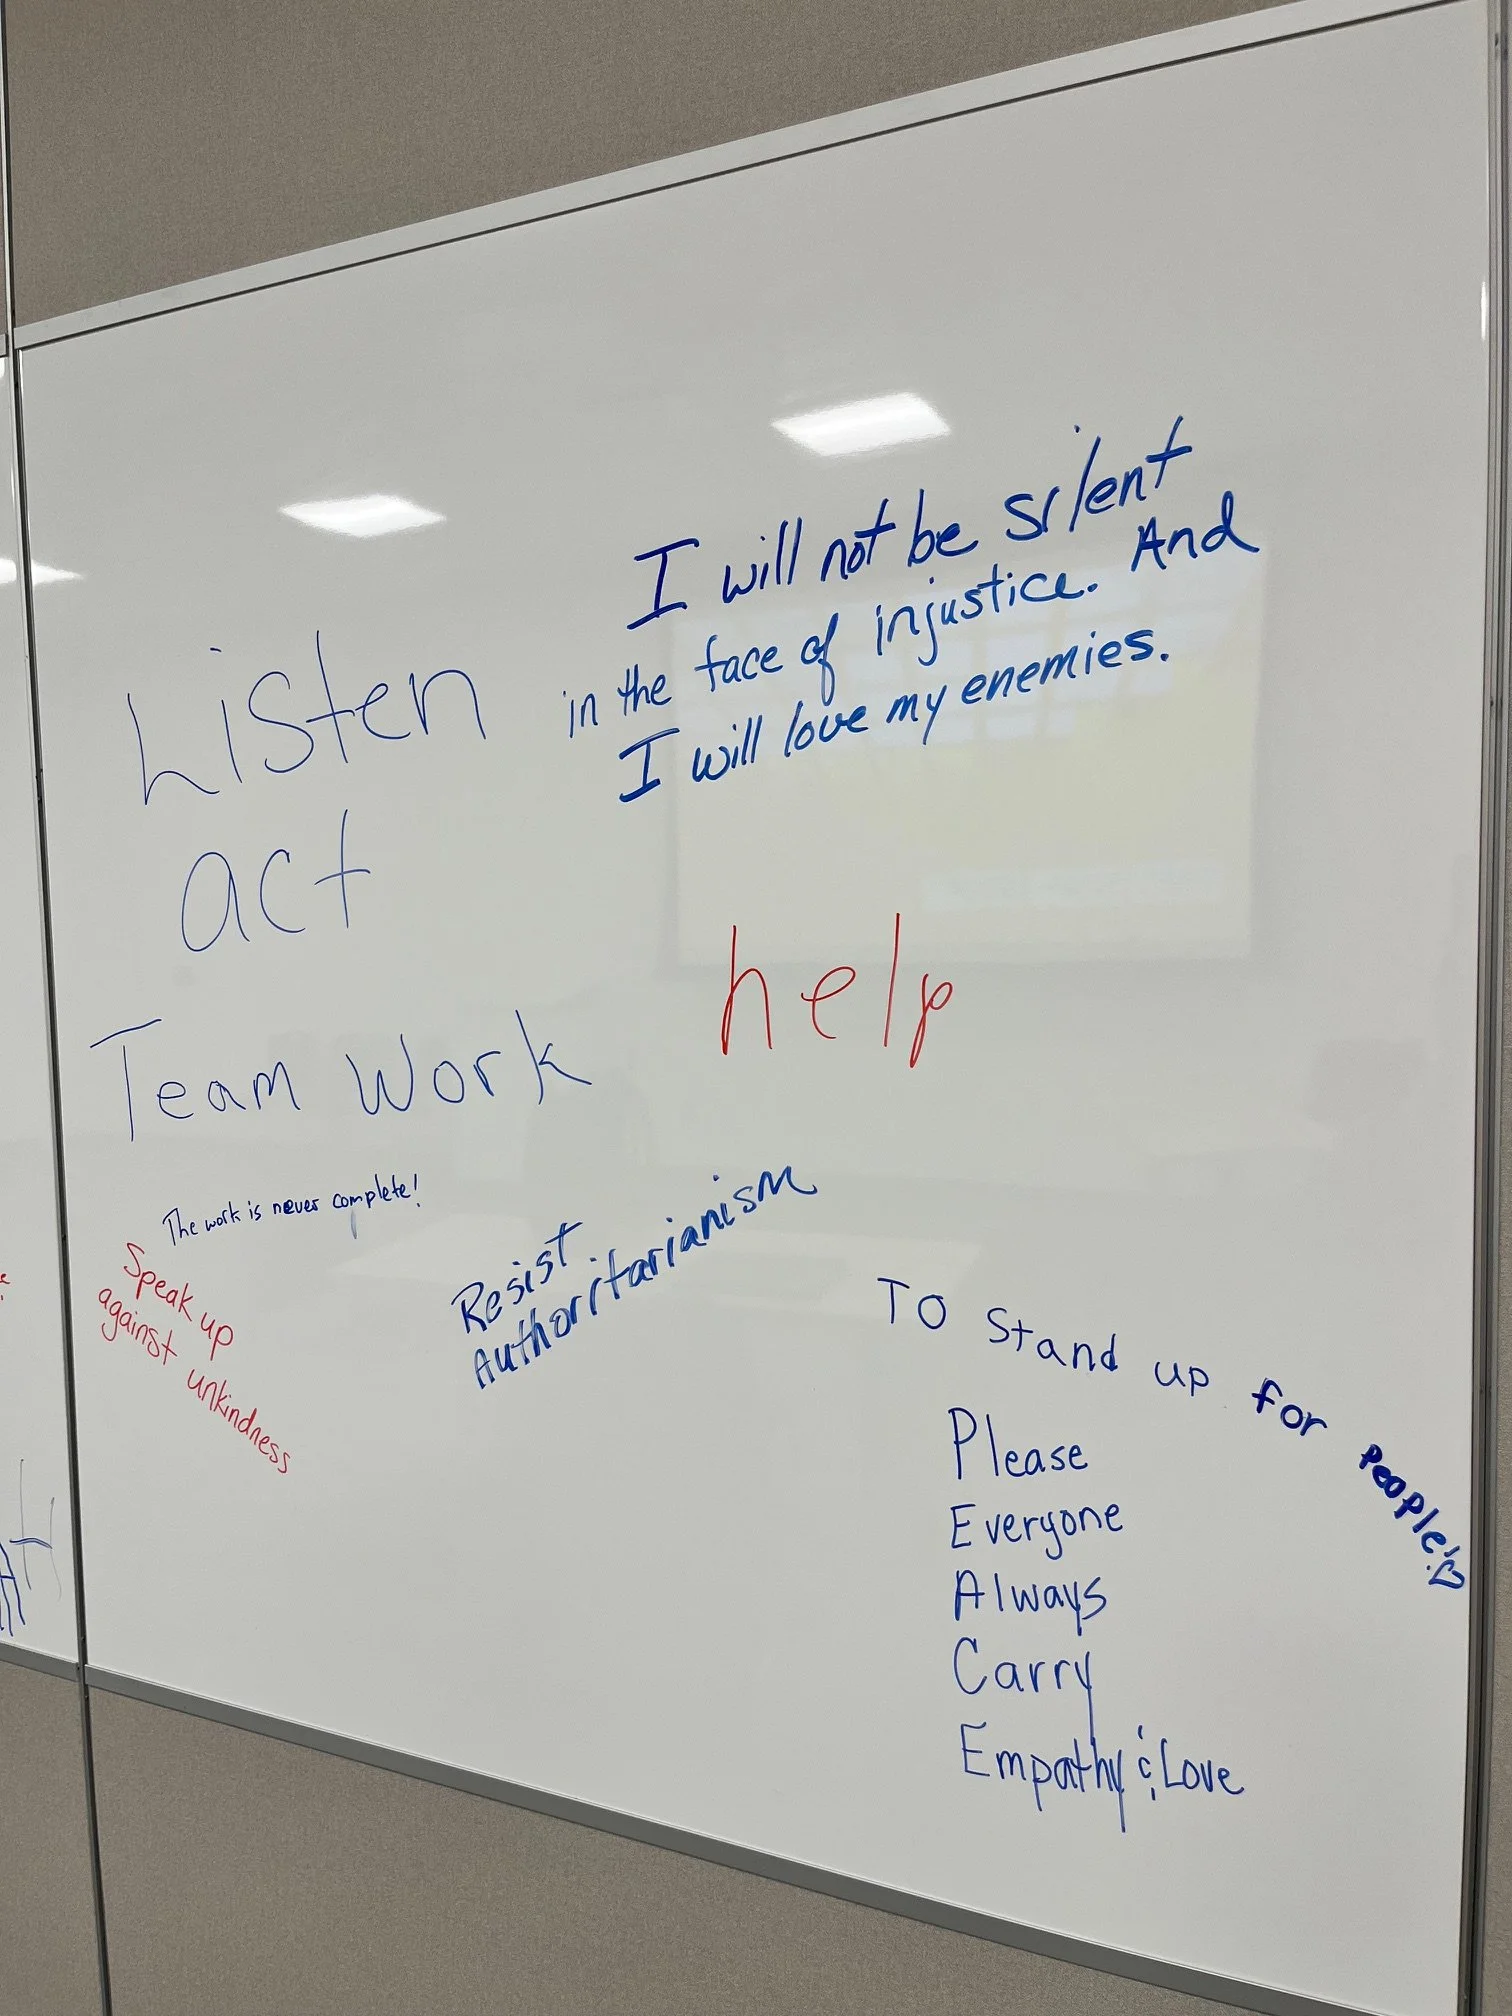 I will not be silent
in the face of injustice. And
I will love my enemies.
Listen
act
Team Work
help
The work is never complete!
Speak up
against unkindness
Resist
Authoritarianism
To Stand up for People!♡
Please
Everyone
Always
Carry
Empathy & Love